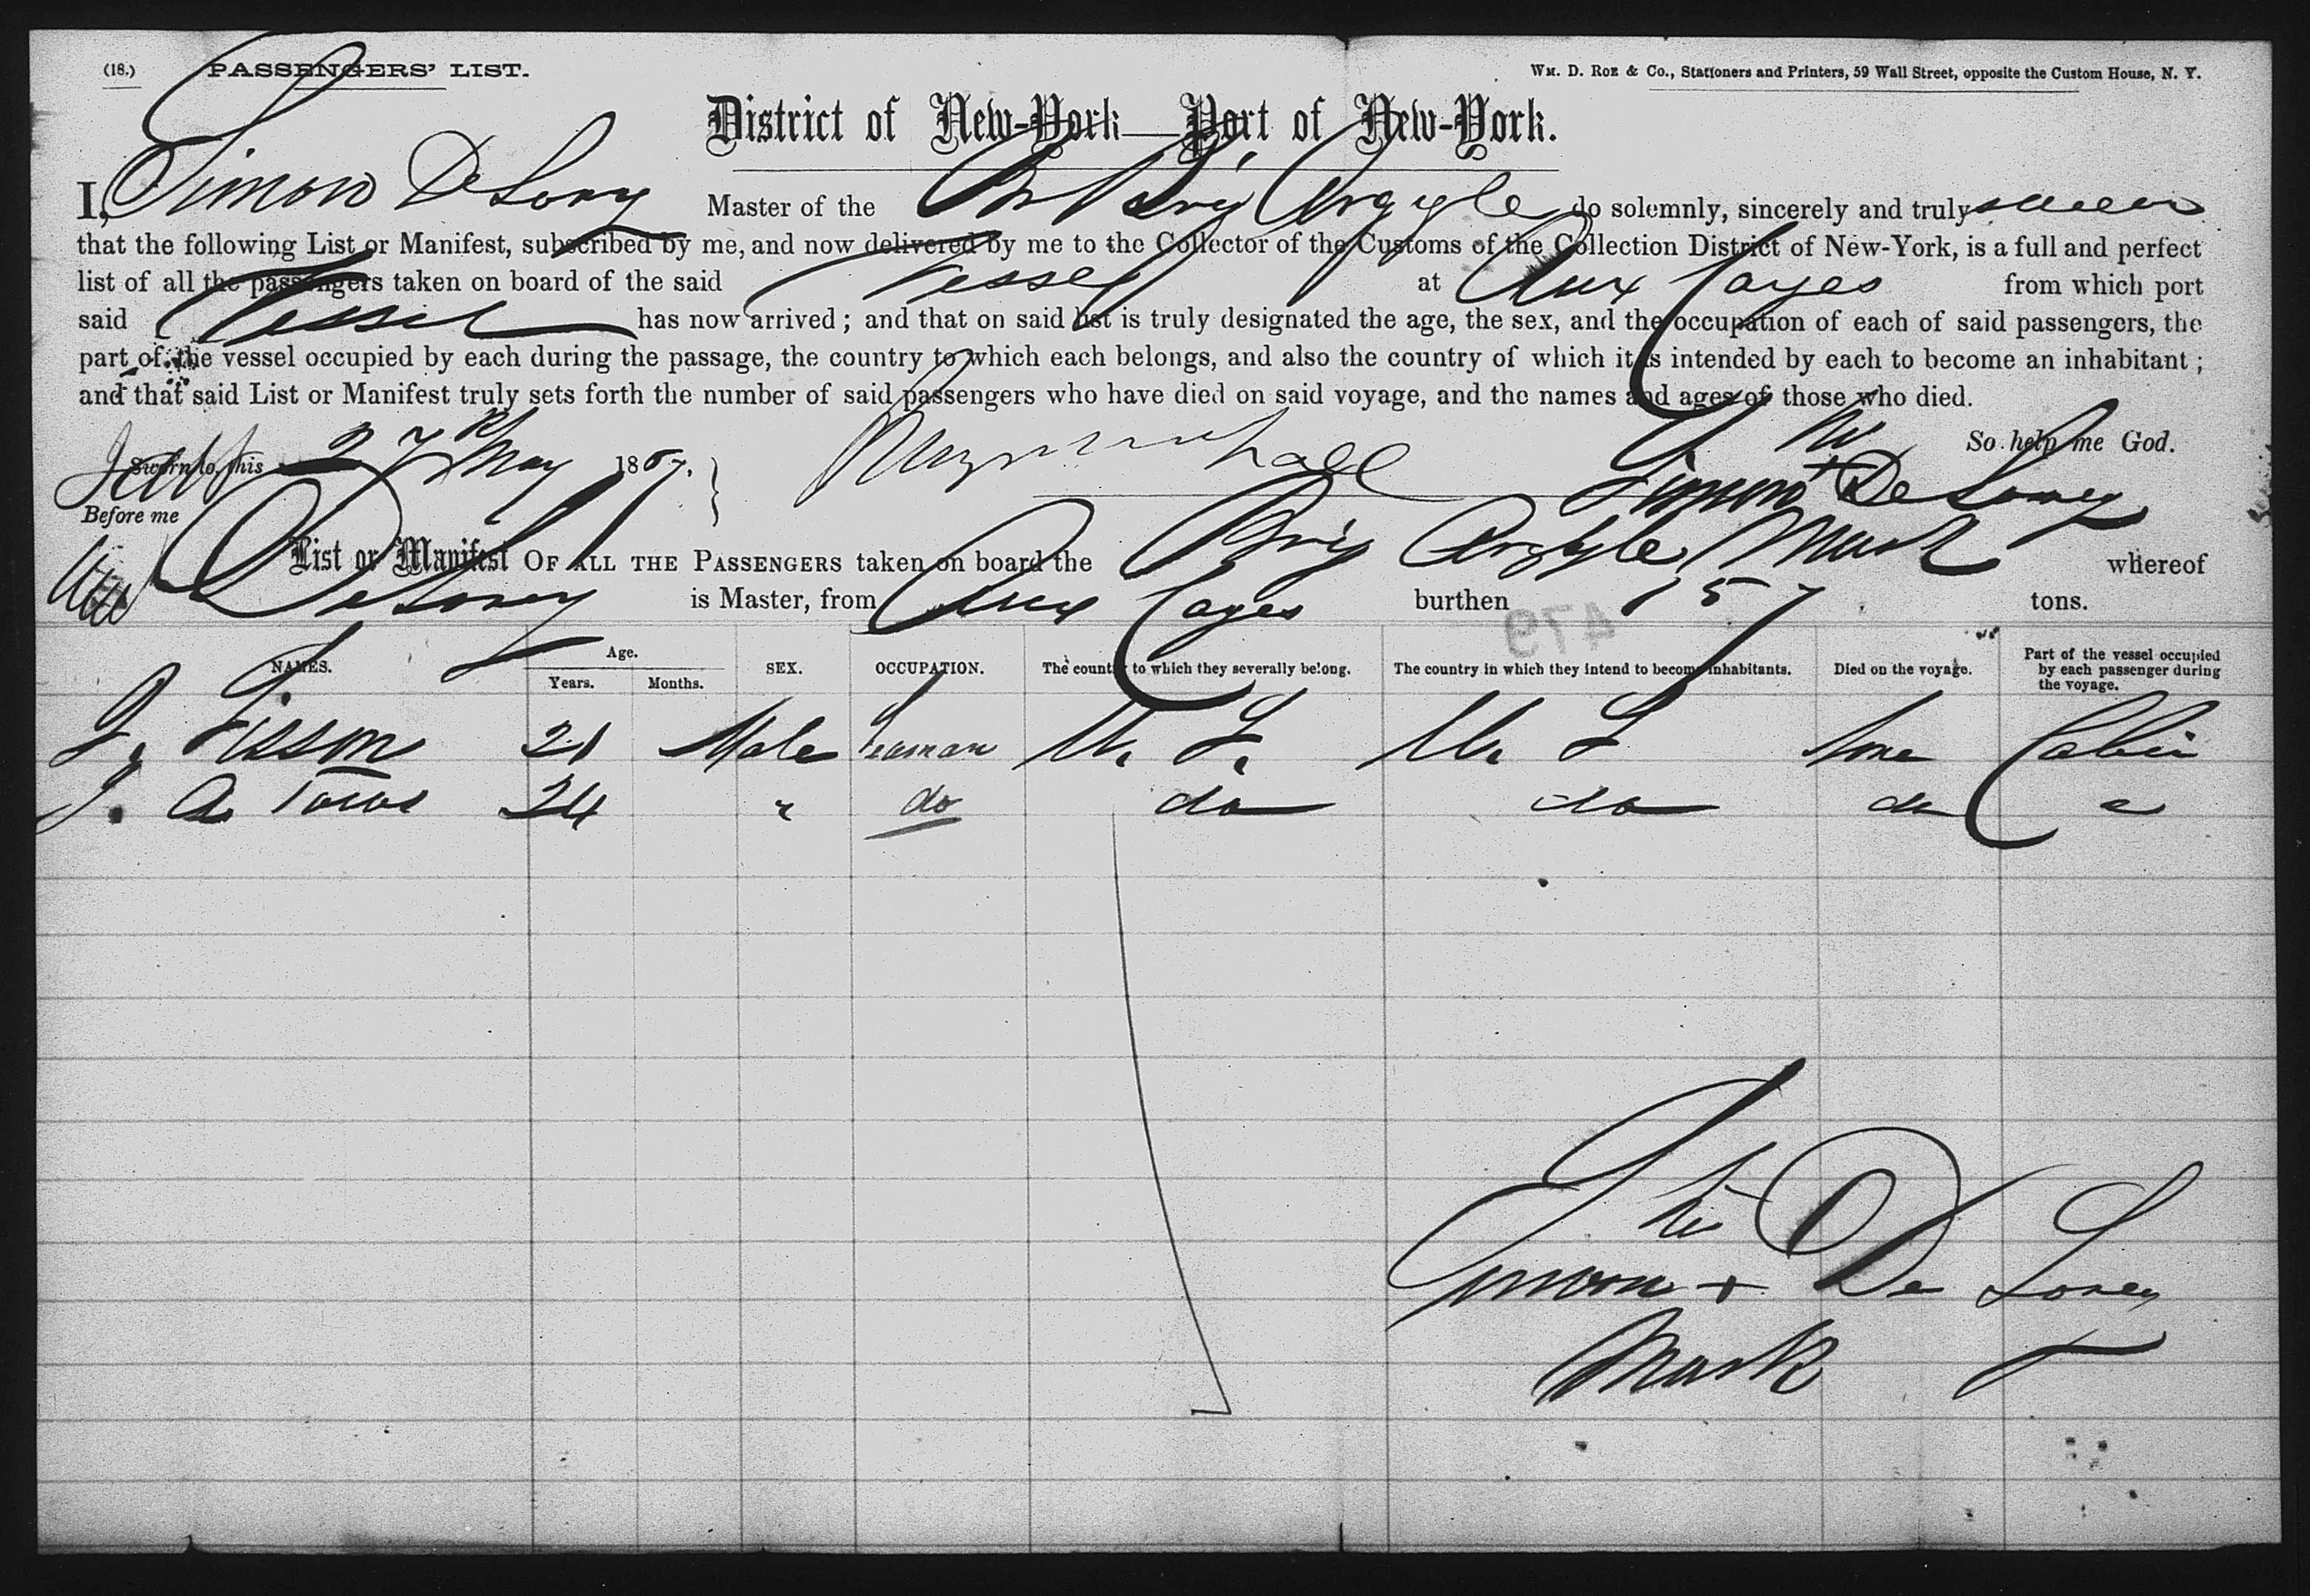 (18.) PASSENGERS' LIST. Wm. D. Roe & Co., Stationers and Printers, 59 Wall Street, opposite the Custom House, N. Y.
District of New-York—Port of New-York.
I, Simon De Lory Master of the Br Brig Argyle do solemnly, sincerely and truly swear
that the following List or Manifest, subscribed by me, and now delivered by me to the Collector of the Customs of the Collection District of New-York, is a full and perfect
list of all the passengers taken on board of the said Vessel at Aux Cayes from which port
said Vessel has now arrived; and that on said list is truly designated the age, the sex, and the occupation of each of said passengers, the
part of the vessel occupied by each during the passage, the country to which each belongs, and also the country of which it is intended by each to become an inhabitant;
and that said List or Manifest truly sets forth the number of said passengers who have died on said voyage, and the names and ages of those who died.
So help me God.
Sworn to, this 27th May 1867.
his
Simon + De Lorey
Mark
Before me
List or Manifest OF ALL THE PASSENGERS taken on board the Brig Argyle whereof
De Lorey is Master, from Aux Cayes burthen 157 tons.
479
NAMES. Age. Years. Months. SEX. OCCUPATION. The country to which they severally belong. The country in which they intend to become inhabitants. Died on the voyage. Part of the vessel occupied by each passenger during the voyage.
Sisson 21 Male Seaman U. S. U. S. None Cabin
J. A. 24 " do do do do "
his
Simon + De Lorey
Mark